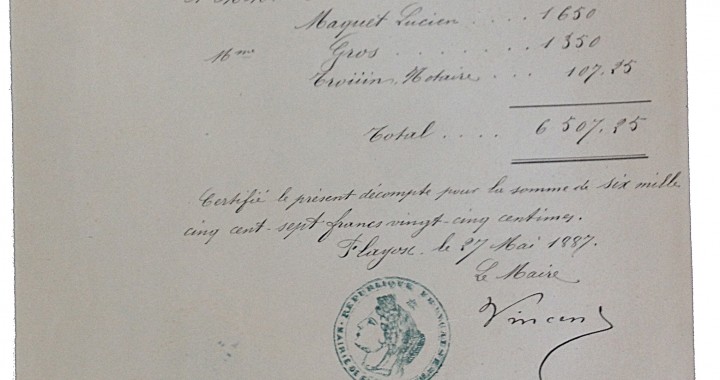 Maquet Lucien . . . . . 1650
Mme Gros . . . . . . . 1350
Trouin, Notaire . . . . 107,25
Total . . . . 6507,25
Certifié le présent décompte pour la somme de six mille
cinq cent-sept francs vingt-cinq centimes.
Flayosc, le 27 Mai 1887.
Le Maire
Vincent
RÉPUBLIQUE FRANÇAISE